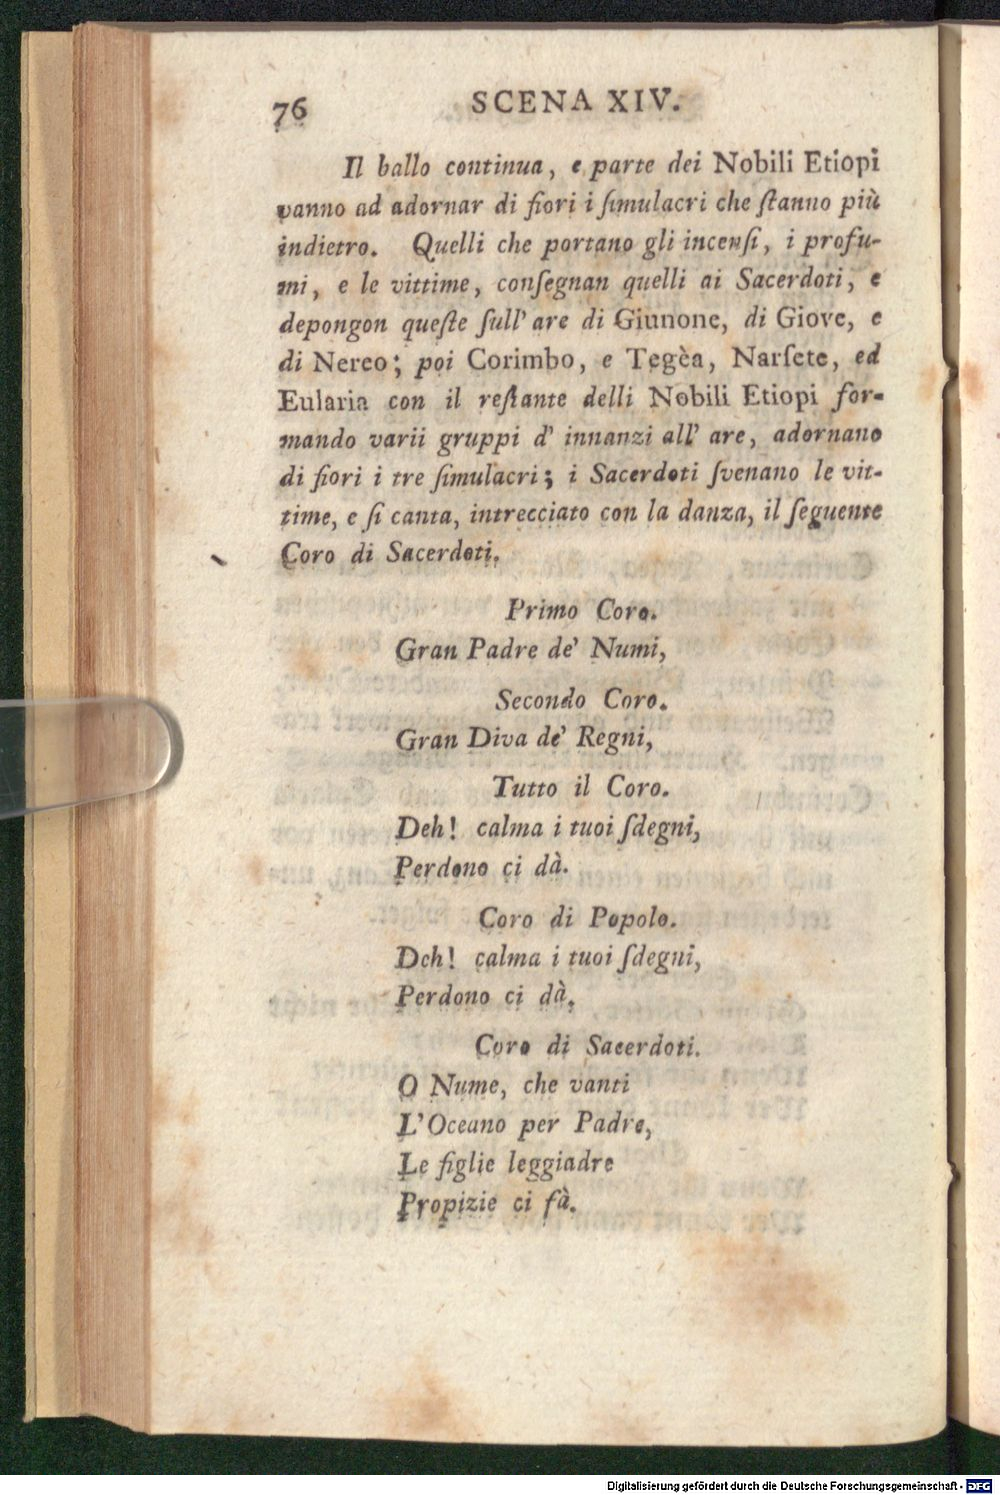 76
SCENA XIV.
Il ballo continua, e parte dei Nobili Etiopi
vanno ad adornar di fiori i ſimulacri che ſtanno più
indietro. Quelli che portano gli incenſi, i profu-
mi, e le vittime, conſegnan quelli ai Sacerdoti, e
depongon queſte ſull' are di Giunone, di Giove, e
di Nereo; poi Corimbo, e Tegèa, Narſete, ed
Eularia con il reſtante delli Nobili Etiopi for-
mando varii gruppi d' innanzi all' are, adornano
di fiori i tre ſimulacri; i Sacerdoti ſvenano le vit-
time, e ſi canta, intrecciato con la danza, il ſeguente
Coro di Sacerdoti.
Primo Coro.
Gran Padre de' Numi,
Secondo Coro.
Gran Diva de' Regni,
Tutto il Coro.
Deh! calma i tuoi ſdegni,
Perdono ci dà.
Coro di Popolo.
Deh! calma i tuoi ſdegni,
Perdono ci dà.
Coro di Sacerdoti.
O Nume, che vanti
L'Oceano per Padre,
Le figlie leggiadre
Propizie ci fà.
Digitalisierung gefördert durch die Deutsche Forschungsgemeinschaft - DFG